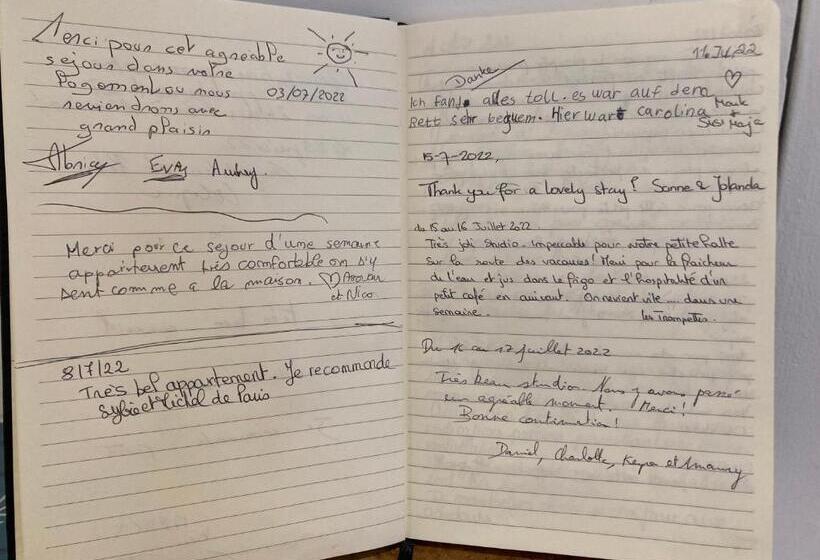 Merci pour cet agreable
sejour dans votre
logement ou nous
reviendrons avec
grand plaisir
03/07/2022
Evan Audrey.
Merci pour ce sejour d'une semaine
appartement très comfortable on s'y
sent comme a la maison. ♡
et Nico
8/7/22
Très bel appartement. Je recommande
Sylvie et Michel de Paris
11 Jul 22
Danke
Ich fand alles toll. es war auf dem
Bett sehr bequem. Hier war Carolina
♡
Maik
+
Maja
15-7-2022,
Thank you for a lovely stay! Sanne & Jolanda
du 15 au 16 Juillet 2022.
Très joli Studio. Impeccable pour notre petite halte
sur la route des vacances! Merci pour la fraicheur
de l'eau et jus dans le frigo et l'hospitalité d'un
petit café en arrivant. On revient vite .... dans une
semaine. les Trompettes.
Du 16 au 17 juillet 2022
Très beau studio. Nous y avons passé
un agréable moment. Merci!
Bonne continuation!
Daniel, Charlotte, et Amaury